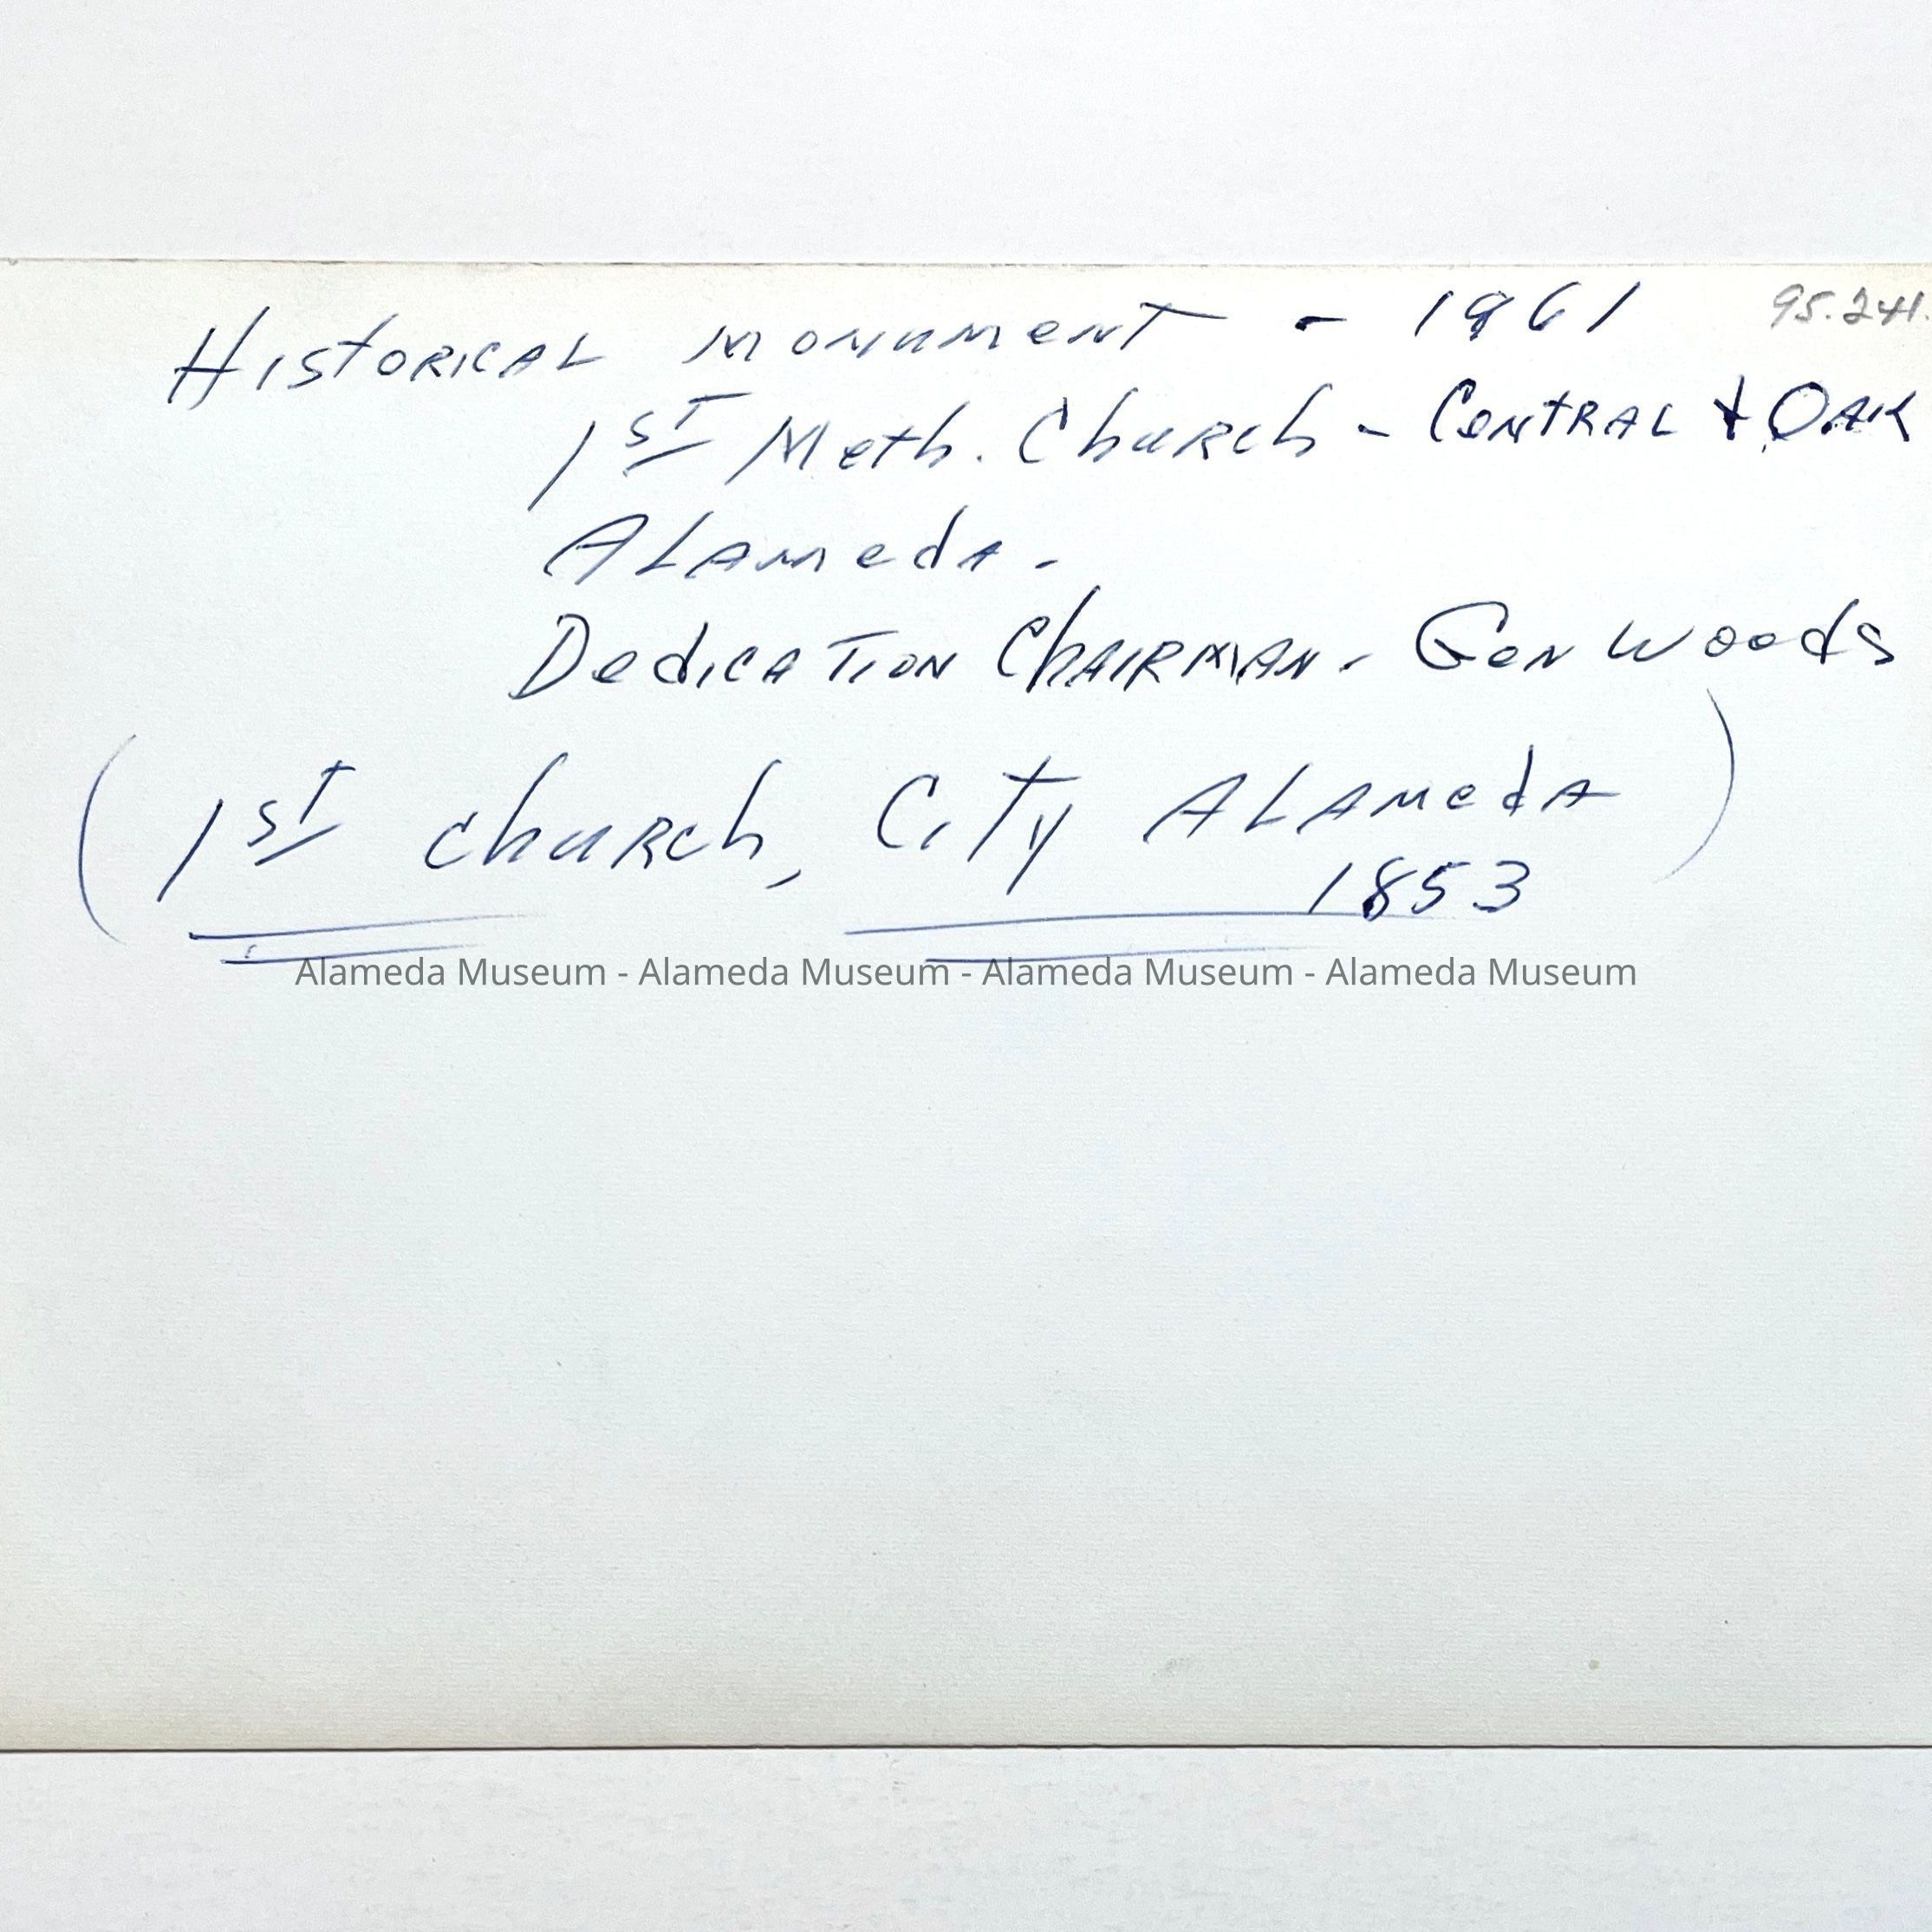 Historical monument - 1961 95.241.
1st Meth. Church - Central & Oak
Alameda.
Dedication Chairman - Gen Woods
(1st church, City Alameda)
1853
Alameda Museum - Alameda Museum - Alameda Museum - Alameda Museum